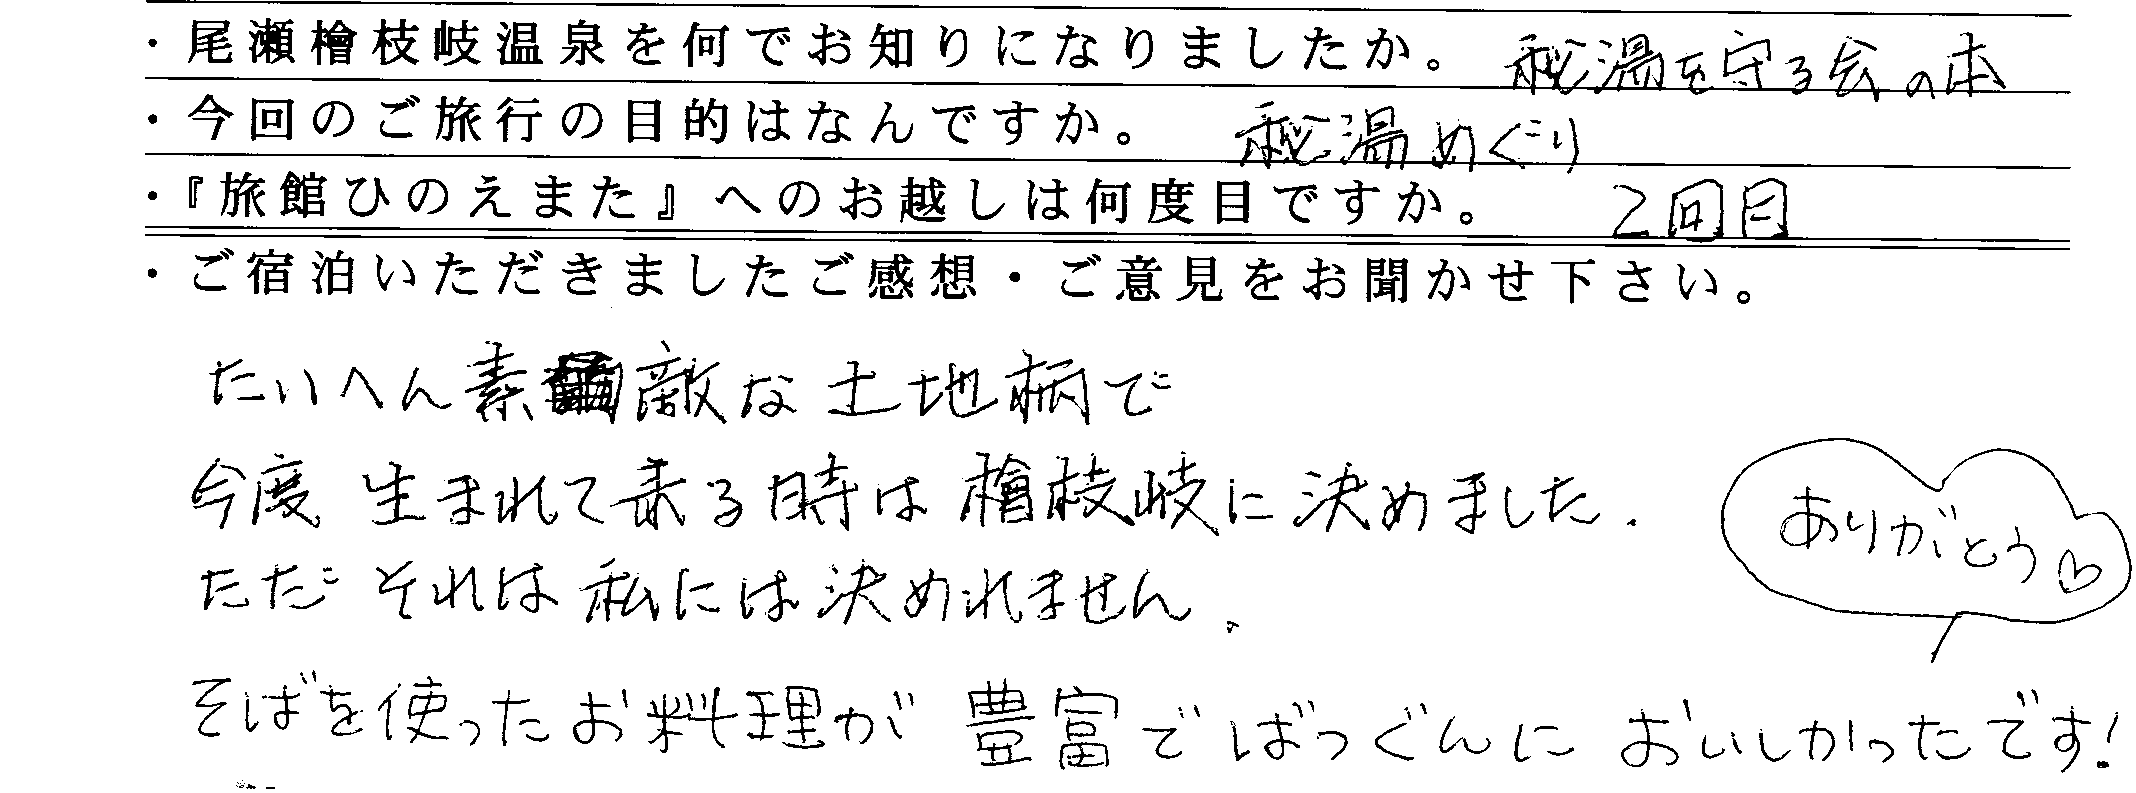 ・尾瀬檜枝岐温泉を何でお知りになりましたか。 秘湯を守る会の本
・今回のご旅行の目的はなんですか。 秘湯めぐり
・『旅館ひのえまた』へのお越しは何度目ですか。 2回目
・ご宿泊いただきましたご感想・ご意見をお聞かせ下さい。
たいへん素敵な土地柄で
今度生まれて来る時は檜枝岐に決めました.
ただそれは私には決めれません.
ありがとう♡
そばを使ったお料理が豊富でばつぐんにおいしかったです!